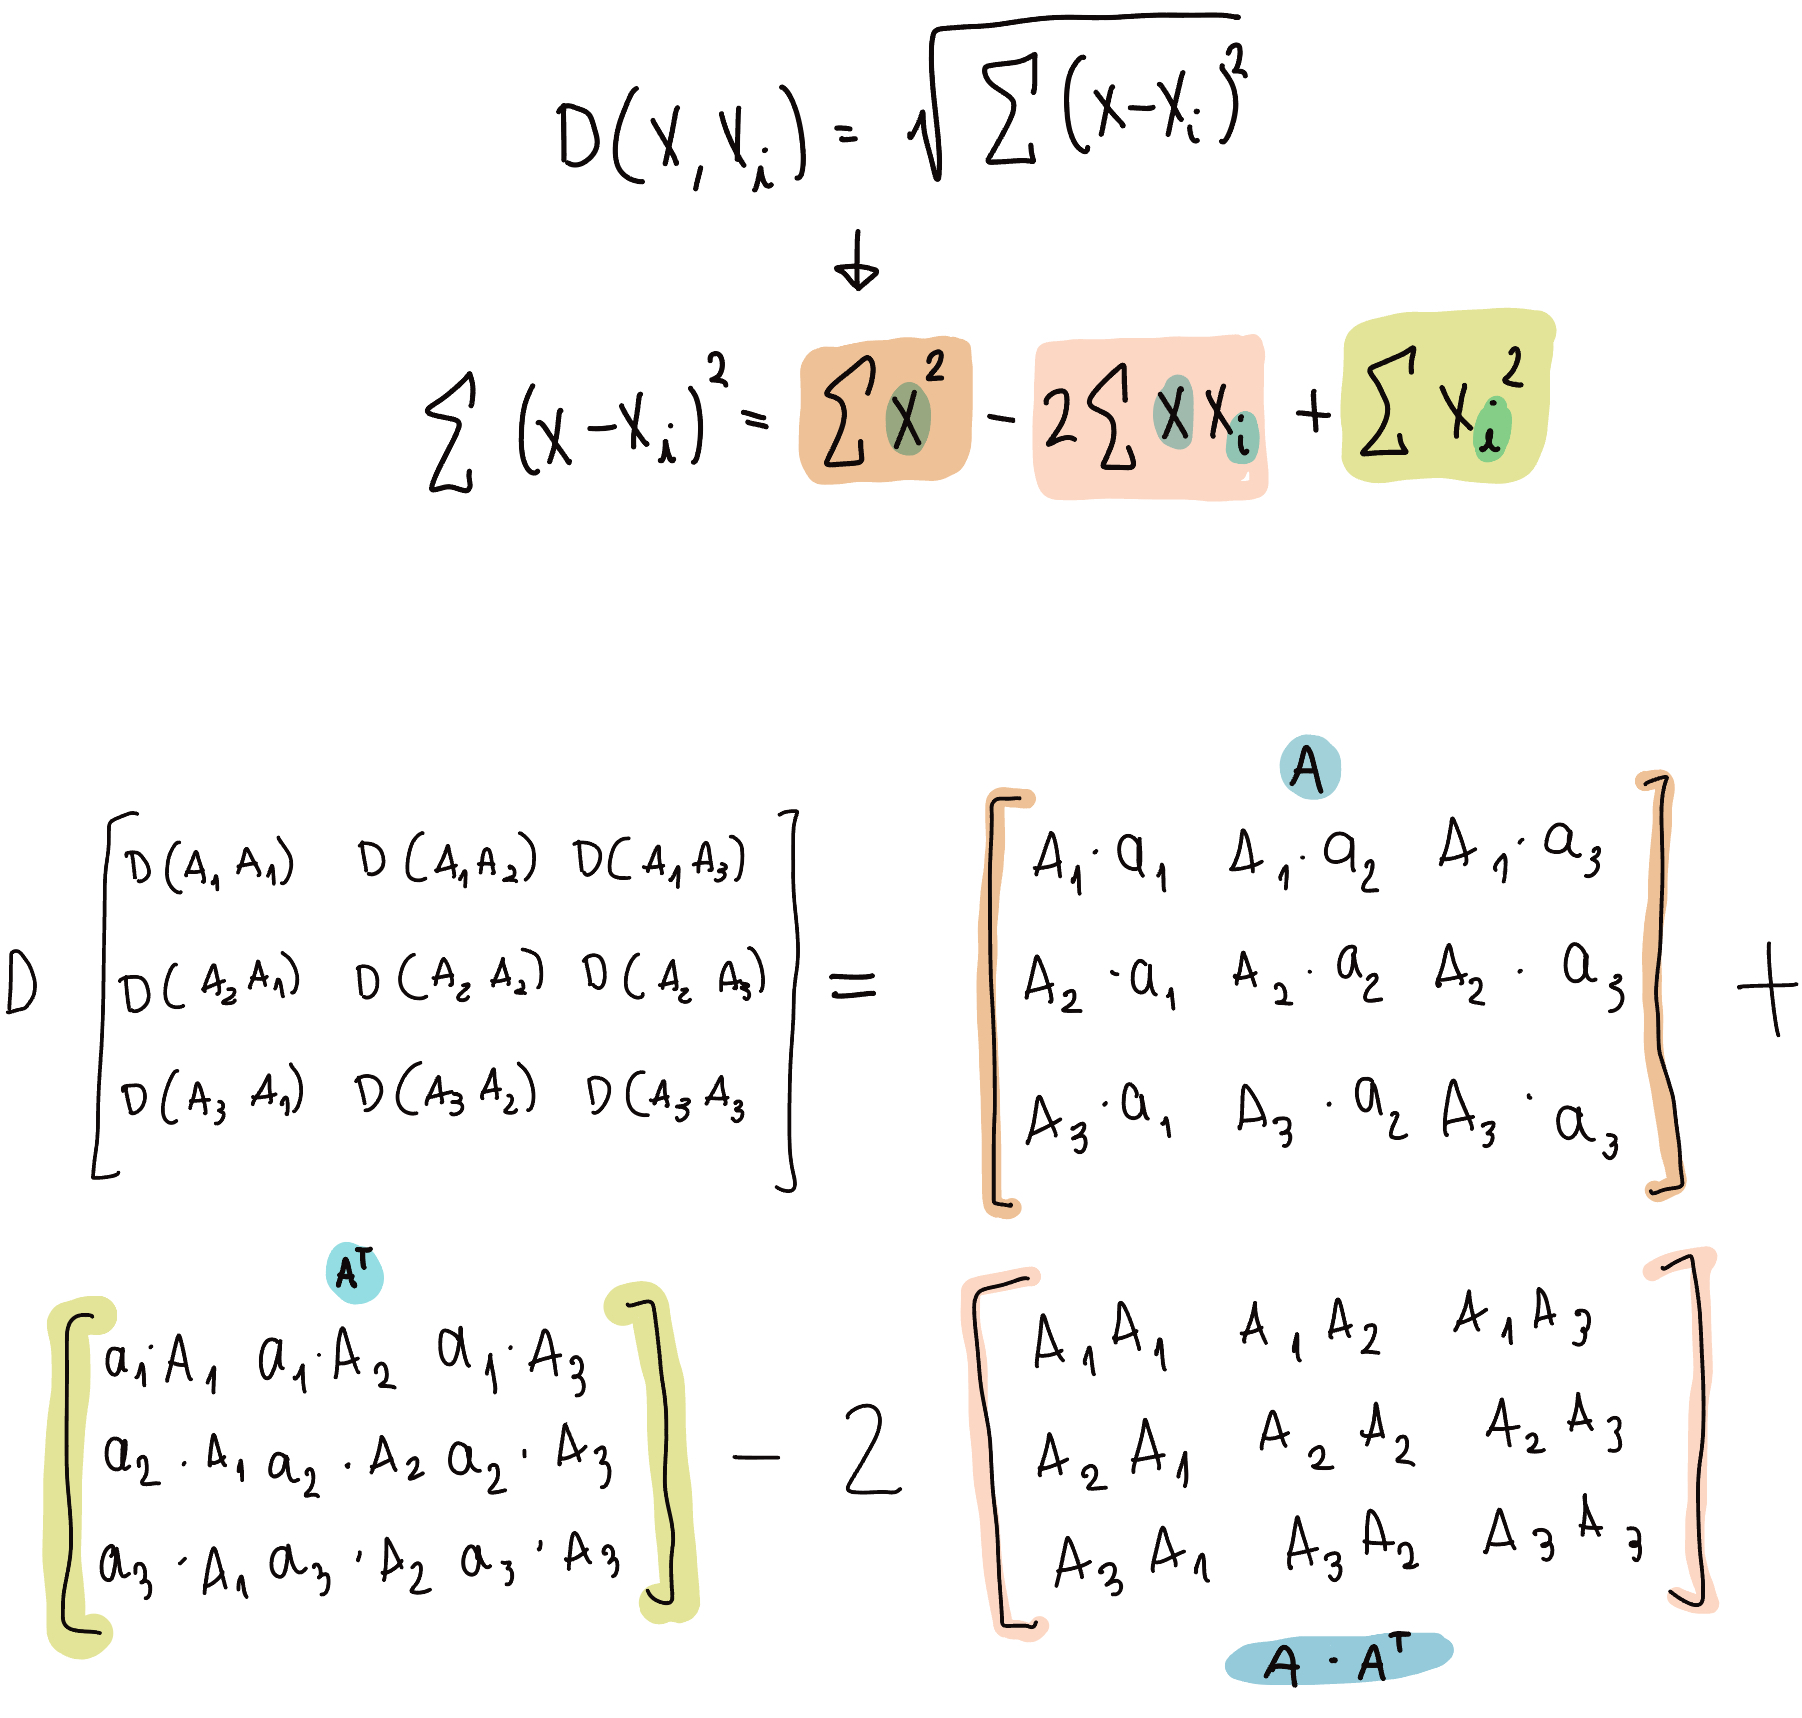 D(X, X_i) = √Σ(x-X_i)²
↓
Σ(x-X_i)² = Σx² - 2Σx x_i + Σx_i²
A
D [D(A₁ A₁) D(A₁ A₂) D(A₁ A₃) = [A₁·a₁ A₁·a₂ A₁·a₃
D(A₂ A₁) D(A₂ A₂) D(A₂ A₃) A₂·a₁ A₂·a₂ A₂·a₃
D(A₃ A₁) D(A₃ A₂) D(A₃ A₃] A₃·a₁ A₃·a₂ A₃·a₃] +
Aᵀ
[a₁·A₁ a₁·A₂ a₁·A₃ - 2 [A₁A₁ A₁A₂ A₁A₃
a₂·A₁ a₂·A₂ a₂·A₃ A₂A₁ A₂A₂ A₂A₃
a₃·A₁ a₃·A₂ a₃·A₃] A₃A₁ A₃A₂ A₃A₃]
A · Aᵀ